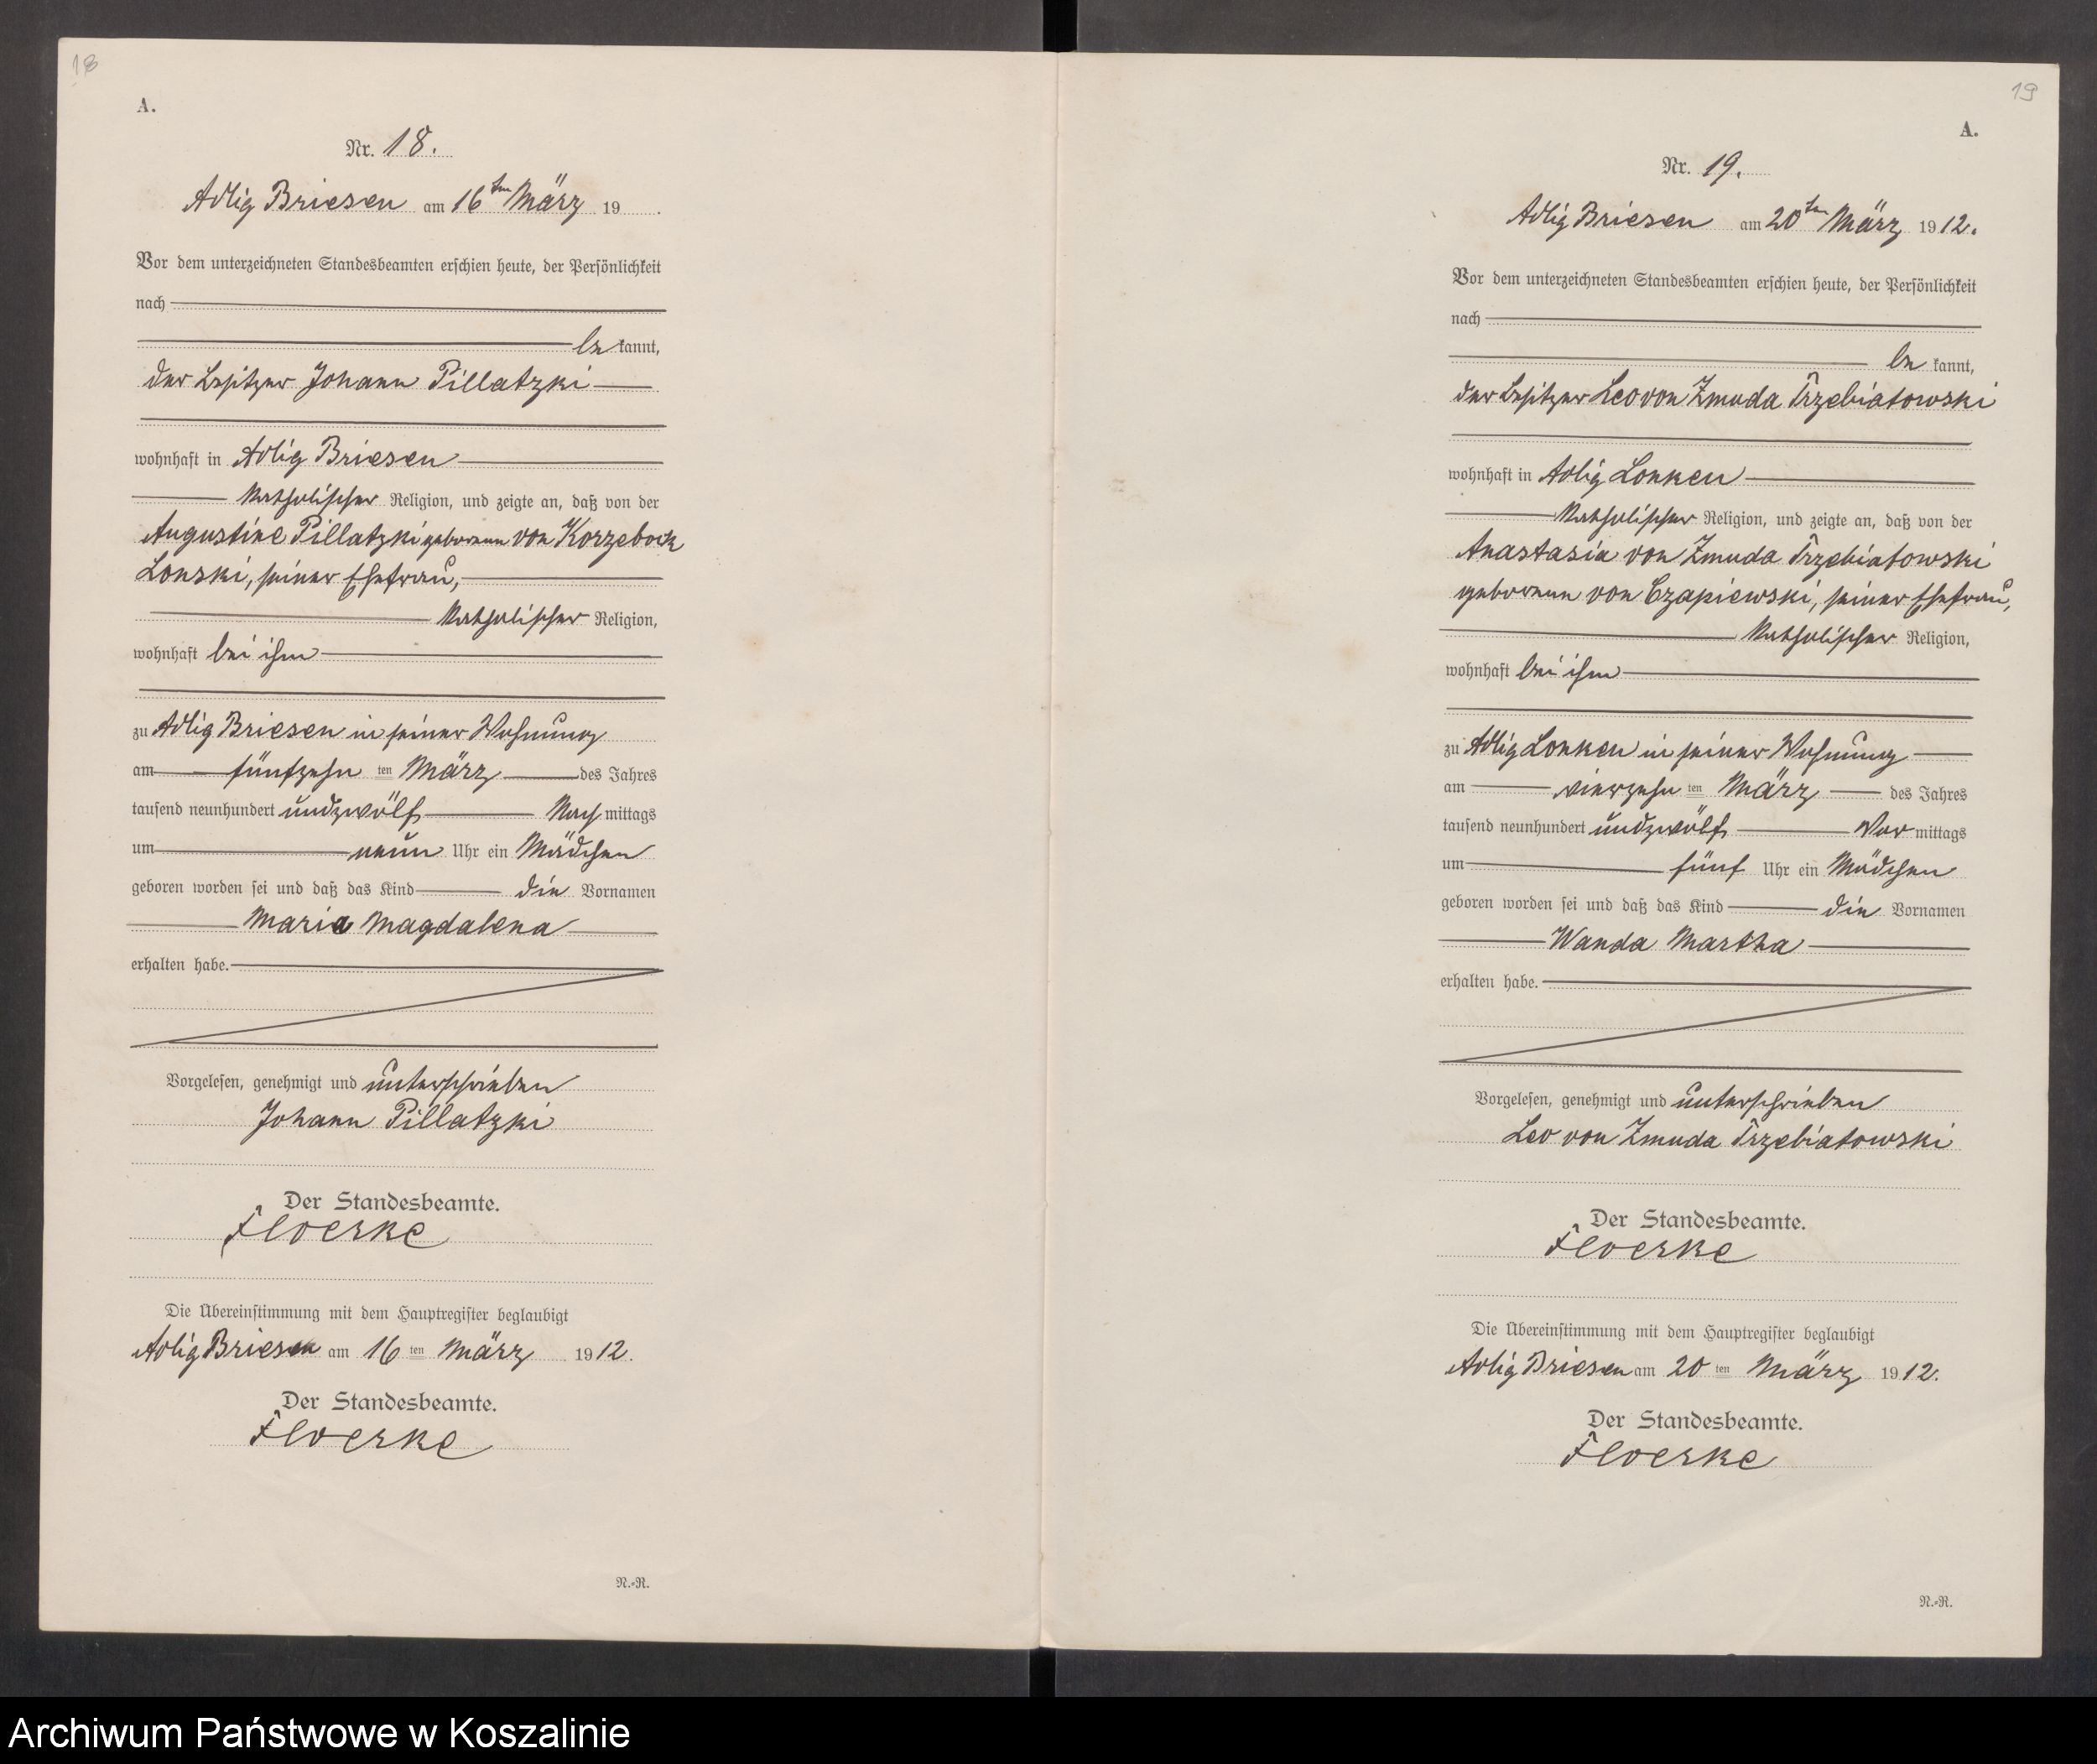 18
A.
Nr. 18.
Adlig Briesen am 16ten März 19 .
Vor dem unterzeichneten Standesbeamten erschien heute, der Persönlichkeit
nach
bekannt,
der Besitzer Johann Pillatzki
wohnhaft in Adlig Briesen
katholischer Religion, und zeigte an, daß von der
Augustine Pillatzki geborenen von Korzebock
Lonski, seiner Ehefrau,
katholischer Religion,
wohnhaft bei ihm
zu Adlig Briesen in seiner Wohnung
am fünfzehn ten März des Jahres
tausend neunhundert undzwölf Nachmittags
um neun Uhr ein Mädchen
geboren worden sei und daß das Kind die Vornamen
Maria Magdalena
erhalten habe.
Vorgelesen, genehmigt und unterschrieben
Johann Pillatzki
Der Standesbeamte.
Floerke
Die Übereinstimmung mit dem Hauptregister beglaubigt
Adlig Briesen am 16 ten März 1912.
Der Standesbeamte.
Floerke
N.-R.
19
A.
Nr. 19.
Adlig Briesen am 20ten März 1912.
Vor dem unterzeichneten Standesbeamten erschien heute, der Persönlichkeit
nach
bekannt,
der Besitzer Leo von Zmuda Trzebiatowski
wohnhaft in Adlig Lonken
katholischer Religion, und zeigte an, daß von der
Anastasia von Zmuda Trzebiatowski
geborenen von Czapiewski, seiner Ehefrau,
katholischer Religion,
wohnhaft bei ihm
zu Adlig Lonken in seiner Wohnung
am vierzehn ten März des Jahres
tausend neunhundert undzwölf Vormittags
um fünf Uhr ein Mädchen
geboren worden sei und daß das Kind die Vornamen
Wanda Martha
erhalten habe.
Vorgelesen, genehmigt und unterschrieben
Leo von Zmuda Trzebiatowski
Der Standesbeamte.
Floerke
Die Übereinstimmung mit dem Hauptregister beglaubigt
Adlig Briesen am 20 ten März 1912.
Der Standesbeamte.
Floerke
N.-R.
Archiwum Państwowe w Koszalinie